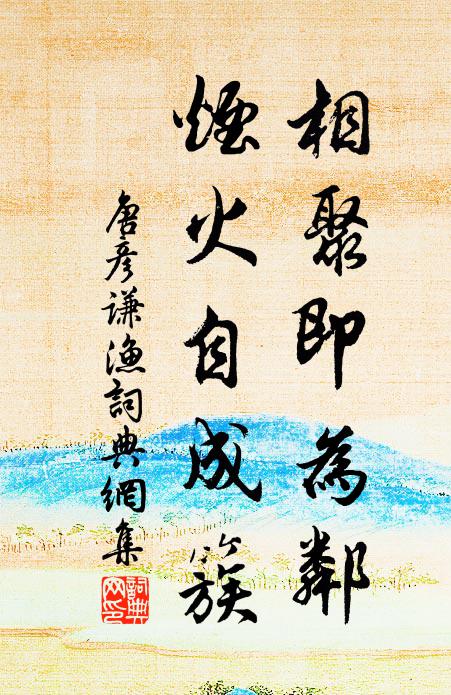 相聚即為鄰
煙火自成簇
唐彥謙漁詞典網集